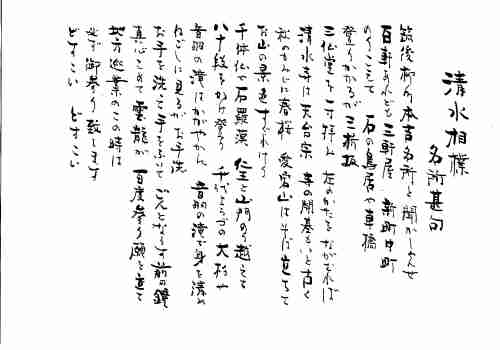 清水相撲
名所甚句
筑後柳の本吉名所を聞かしよんせ
百軒あれども三軒屋 新町中町
のりこえて 石の鳥居や車橋
登りかかるが三折坂
三仏堂を一寸拝み 左のかたをながむれば
清水寺は天台宗 寺の開基もいと古く
秋のもみじに春桜 愛宕山はそば立ちて
お山の景色すぐれけり
千体仏や石羅漢 仁王と山門のり越えて
八十段から登り 千代よろづの大杉や
音羽の滝はかがやかん 音羽の滝で身を清め
ねごしに見るがお手洗
お手を洗って手をふって ごんとならす前の鐘
真心こめて雲龍が 百度参り願を立て
地方巡業のこの時は
必ず御参り致します
どすこい どすこい